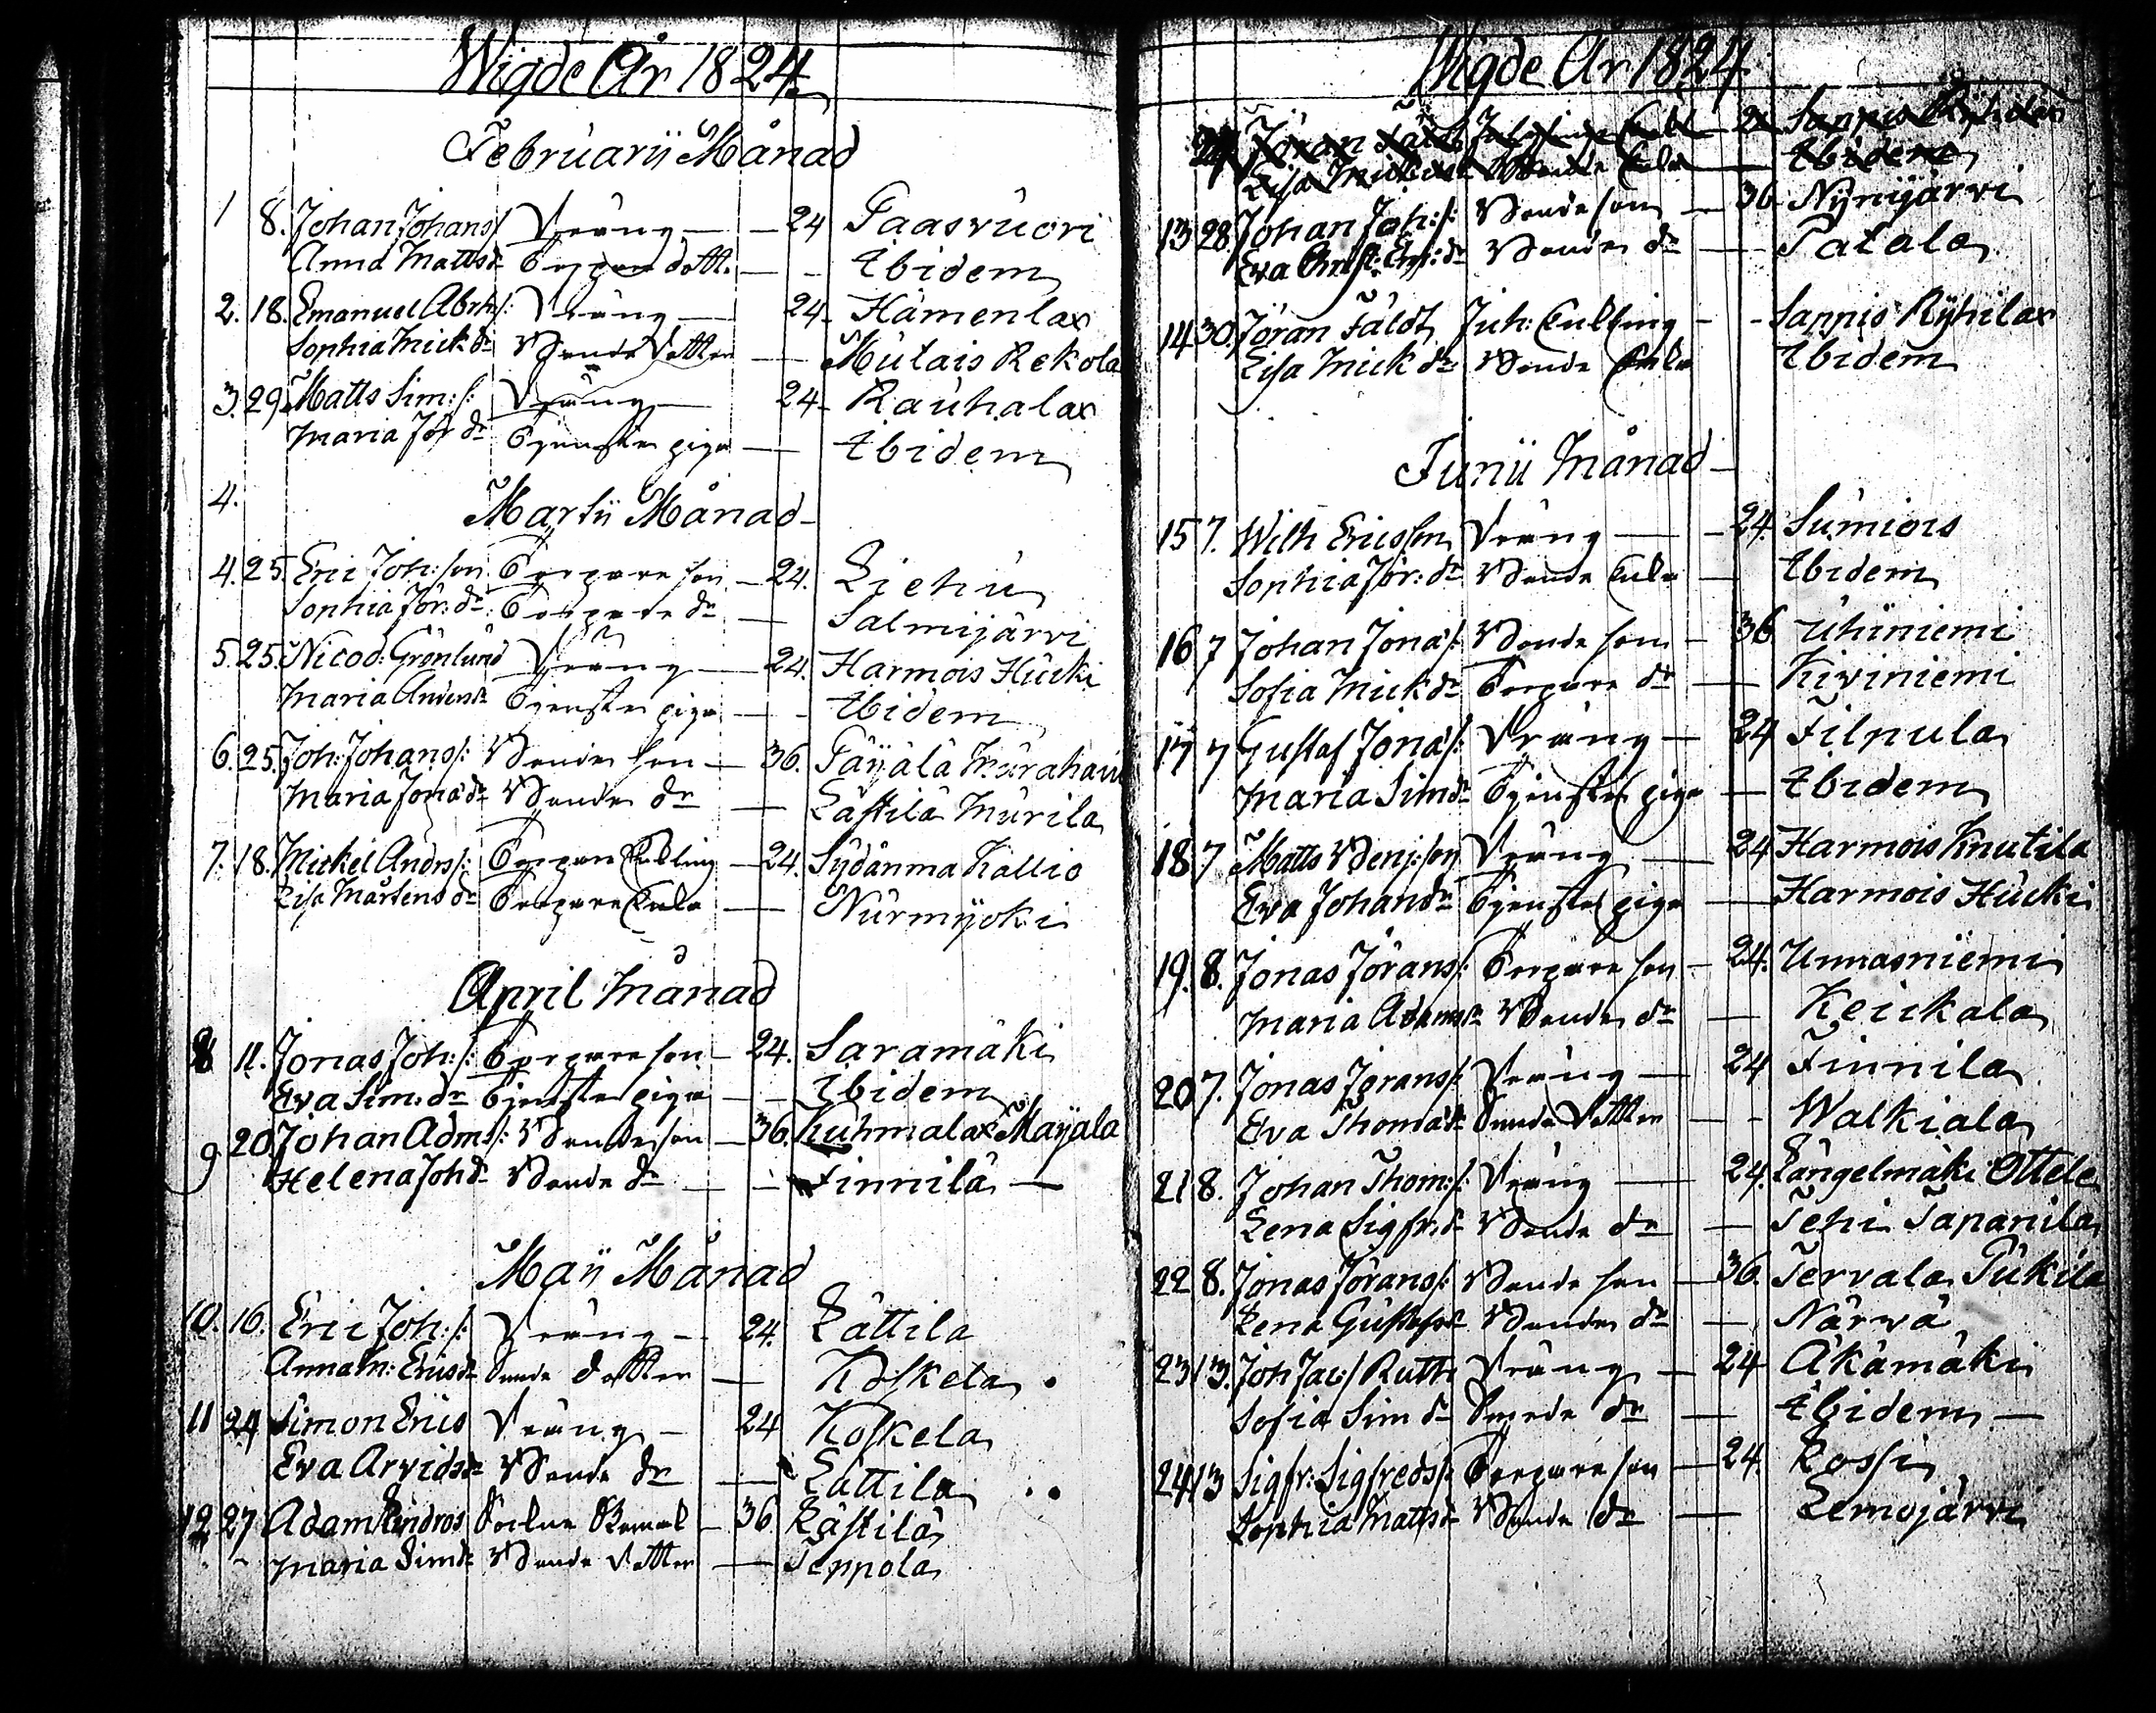 Wigde År 1824
Februarii Månad
1 8. Johan Johans/: Dräng — 24 Paasvuori
Anna Mattsdr Torpare dottr. — Ibidem
2. 18. Emanuel Abrh/: Dräng — 24. Hämenlax
Sophia Mick.dr Bonde dotter — Mutais Rekola
3. 29. Matts Sim:/: Dräng — 24. Rauhalax
Maria Jör dr Tjenste piga — Ibidem
4.
Martii Månad
4. 25. Eric Joh:son Torpare son — 24. Liehu
Sophia Jör: dr Torpare dr — Salmijärvi
5. 25. Nicod: Grönlund Dräng — 24. Harmois Hucki
Maria Anders dr Tjenste piga — Ibidem
6. 25. Joh: Johans/: Bonde son — 36. Päijälä
Maria Jona dr Bonde dr — Lästilä Murila
7. 18. Mickel Andrs/: Torpare Enkling — 24. Sydänma Kallio
Lisa Mårtens dr Torpare Enka — Nurmijoki
April Månad
8 11. Jonas Joh:/: Torpare son — 24. Saramäki
Eva Sim: dr Tjenste piga — Ibidem
9 20. Johan Adms/: Bonde son — 36. Kuhmalax Maijala
Helena Joh dr Bonde dr — Finnilä —
Maii Månad
10. 16. Eric Joh:/: Dräng — 24. Lättilä
Anna M: Ericsdr dotter — Koskela
11 24 Simon Erics Dräng — 24 Koskela
Eva Arvidsdr Bonde dr — Lättilä
12 27 Adam Andros — 36. Lästilä
Maria Simdr Bonde dotter — Seppola
Wigde År 1824
Jöran Fäldt 24 Sappis Ryhilax
Lisa Mickdr Bonde Enka — Ibidem
13 28. Johan Joh:/: Bonde son — 36 Nynijärvi
Eva dr Bonde dr — Patala
14 30. Jöran Fäldt Inh: Enkling — Sappis Ryhilax
Lisa Mick dr Bonde Enka Ibidem
Junii Månad
15 7. Wilh Ericsson Dräng — 24. Sumiois
Sophia Jör: dr Bonde Enka — Ibidem
16 7 Johan Jona/: Bonde son — 36 Uhiniemi
Sofia Mick dr Torpare dr — Kiviniemi
17 7 Gustaf Jona/: Dräng — 24 Filpula
Maria Simdr Tjenste piga — Ibidem
18 7 Matts Benj:son Dräng — 24 Harmois Knutila
Eva Johandr Tjenste piga — Harmois Hucki
19. 8. Jonas Jörans/: Torpare son — 24. Unnasniemi
Maria Adamsdr Bonde dr — Keickala
20 7. Jonas Jörans/: Dräng — 24 Finnila
Eva Thoma dr dotter — Walkiala
21 8. Johan Thom:/: Dräng — 24. Längelmäki Ottele
Lena Sigfr. dr Bonde dr — Tehi Tapanila
22 8. Jonas Jörans/: Bonde son — 36. Tervala Pukila
Lena Gustafsdr Bonde dr — Närvä
23 13. Joh Jac:/ Ruth Dräng — 24 Åkämäki
Sofia Sim dr dr — Ibidem —
24 13 Sigfr: Sigfreds/: Torpare son — 24. Rossi
Sophia Matts dr Bonde dr — Lemojärvi